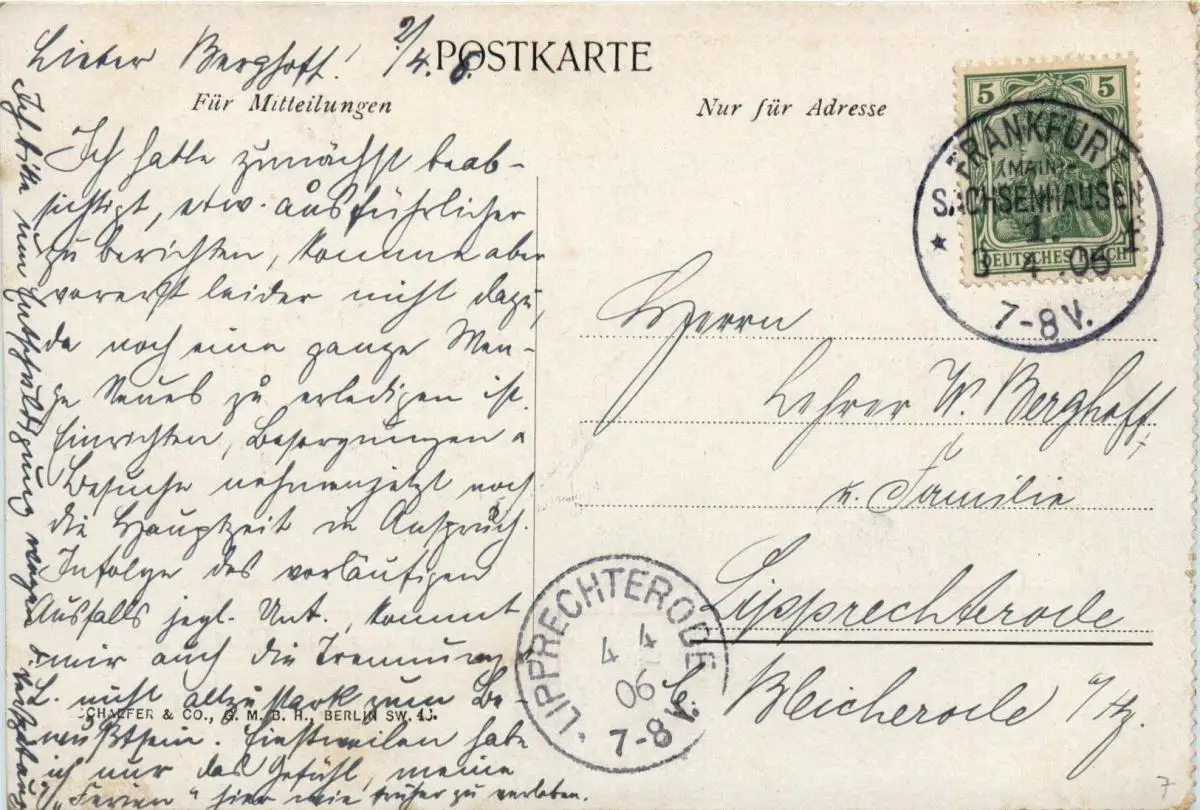 Lieber Berghoff! 2/4. 6.
POSTKARTE
Für Mitteilungen
Ich hatte zunächst beab-
sichtigt, etw. ausführlicher
zu berichten, komme aber
vorerst leider nicht dazu,
da noch eine ganze Men-
ge Neues zu erledigen ist.
Einrichten, Besorgungen u
Besuche nehmen jetzt noch
die Hauptzeit in Anspruch.
Infolge des vorläufigen
Ausfalls jegl. Unt. kommt
mir auch die Trennung
nicht allzu stark zum Be
wußtsein. Einstweilen habe
ich nur das Gefühl, meine
"Ferien" hier wie früher zu verleben.
Ich bitte um Entschuldigung wegen
SCHAEFER & CO., G. M. B. H., BERLIN SW. 48.
Nur für Adresse
5 5
DEUTSCHES REICH
FRANKFURT
(MAIN)
SACHSENHAUSEN
1.
3 4 .06
7-8 V.
Herrn
Lehrer W. Berghoff
u. Familie
Lipprechterode
b. Bleicherode a/Hz.
LIPPRECHTERODE
4 4
06
7-8 V.
7